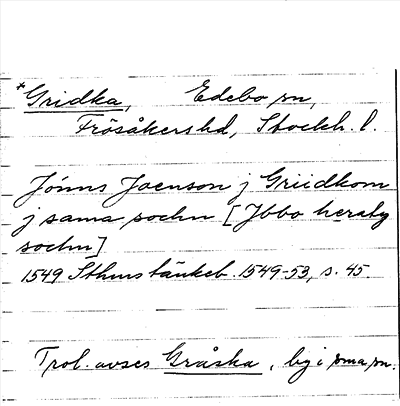 *Gridka, Edebo sn,
Frösåkers hd, Stockh. l.
Jönns Joenson j Griidkom
j sama sochn [Jbbo heraly
sochn]
1549 Sthms tänkeb. 1549-53, s. 45.
Trol. avses Gråska, by i sma sn.